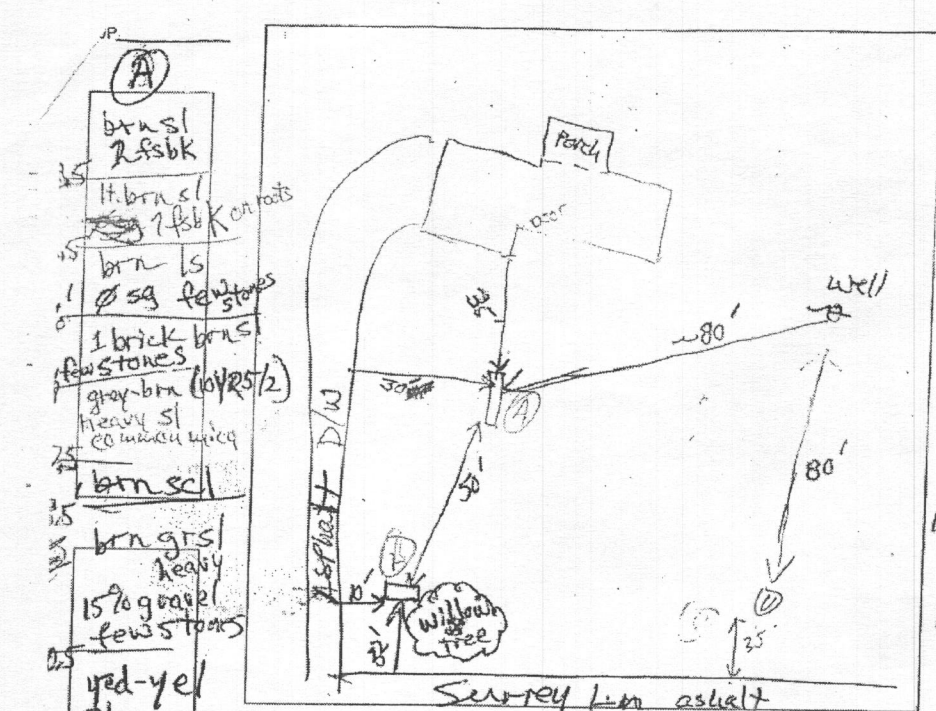 A
brn sl
2fsbk
lt. brn sl
2fsbk on roots
brn ls
Ø sg few stones
1 brick brn sl
few stones
gray-brn (10YR5/2)
Heavy sl
common mica
brn scl
brn grsl
heavy
15% gravel
few stones
red-yel
Porch
Door
Well
~80'
A
D/W
Asphalt
50'
80'
10'
Willow
Tree
D
35'
Surrey Ln ashalt